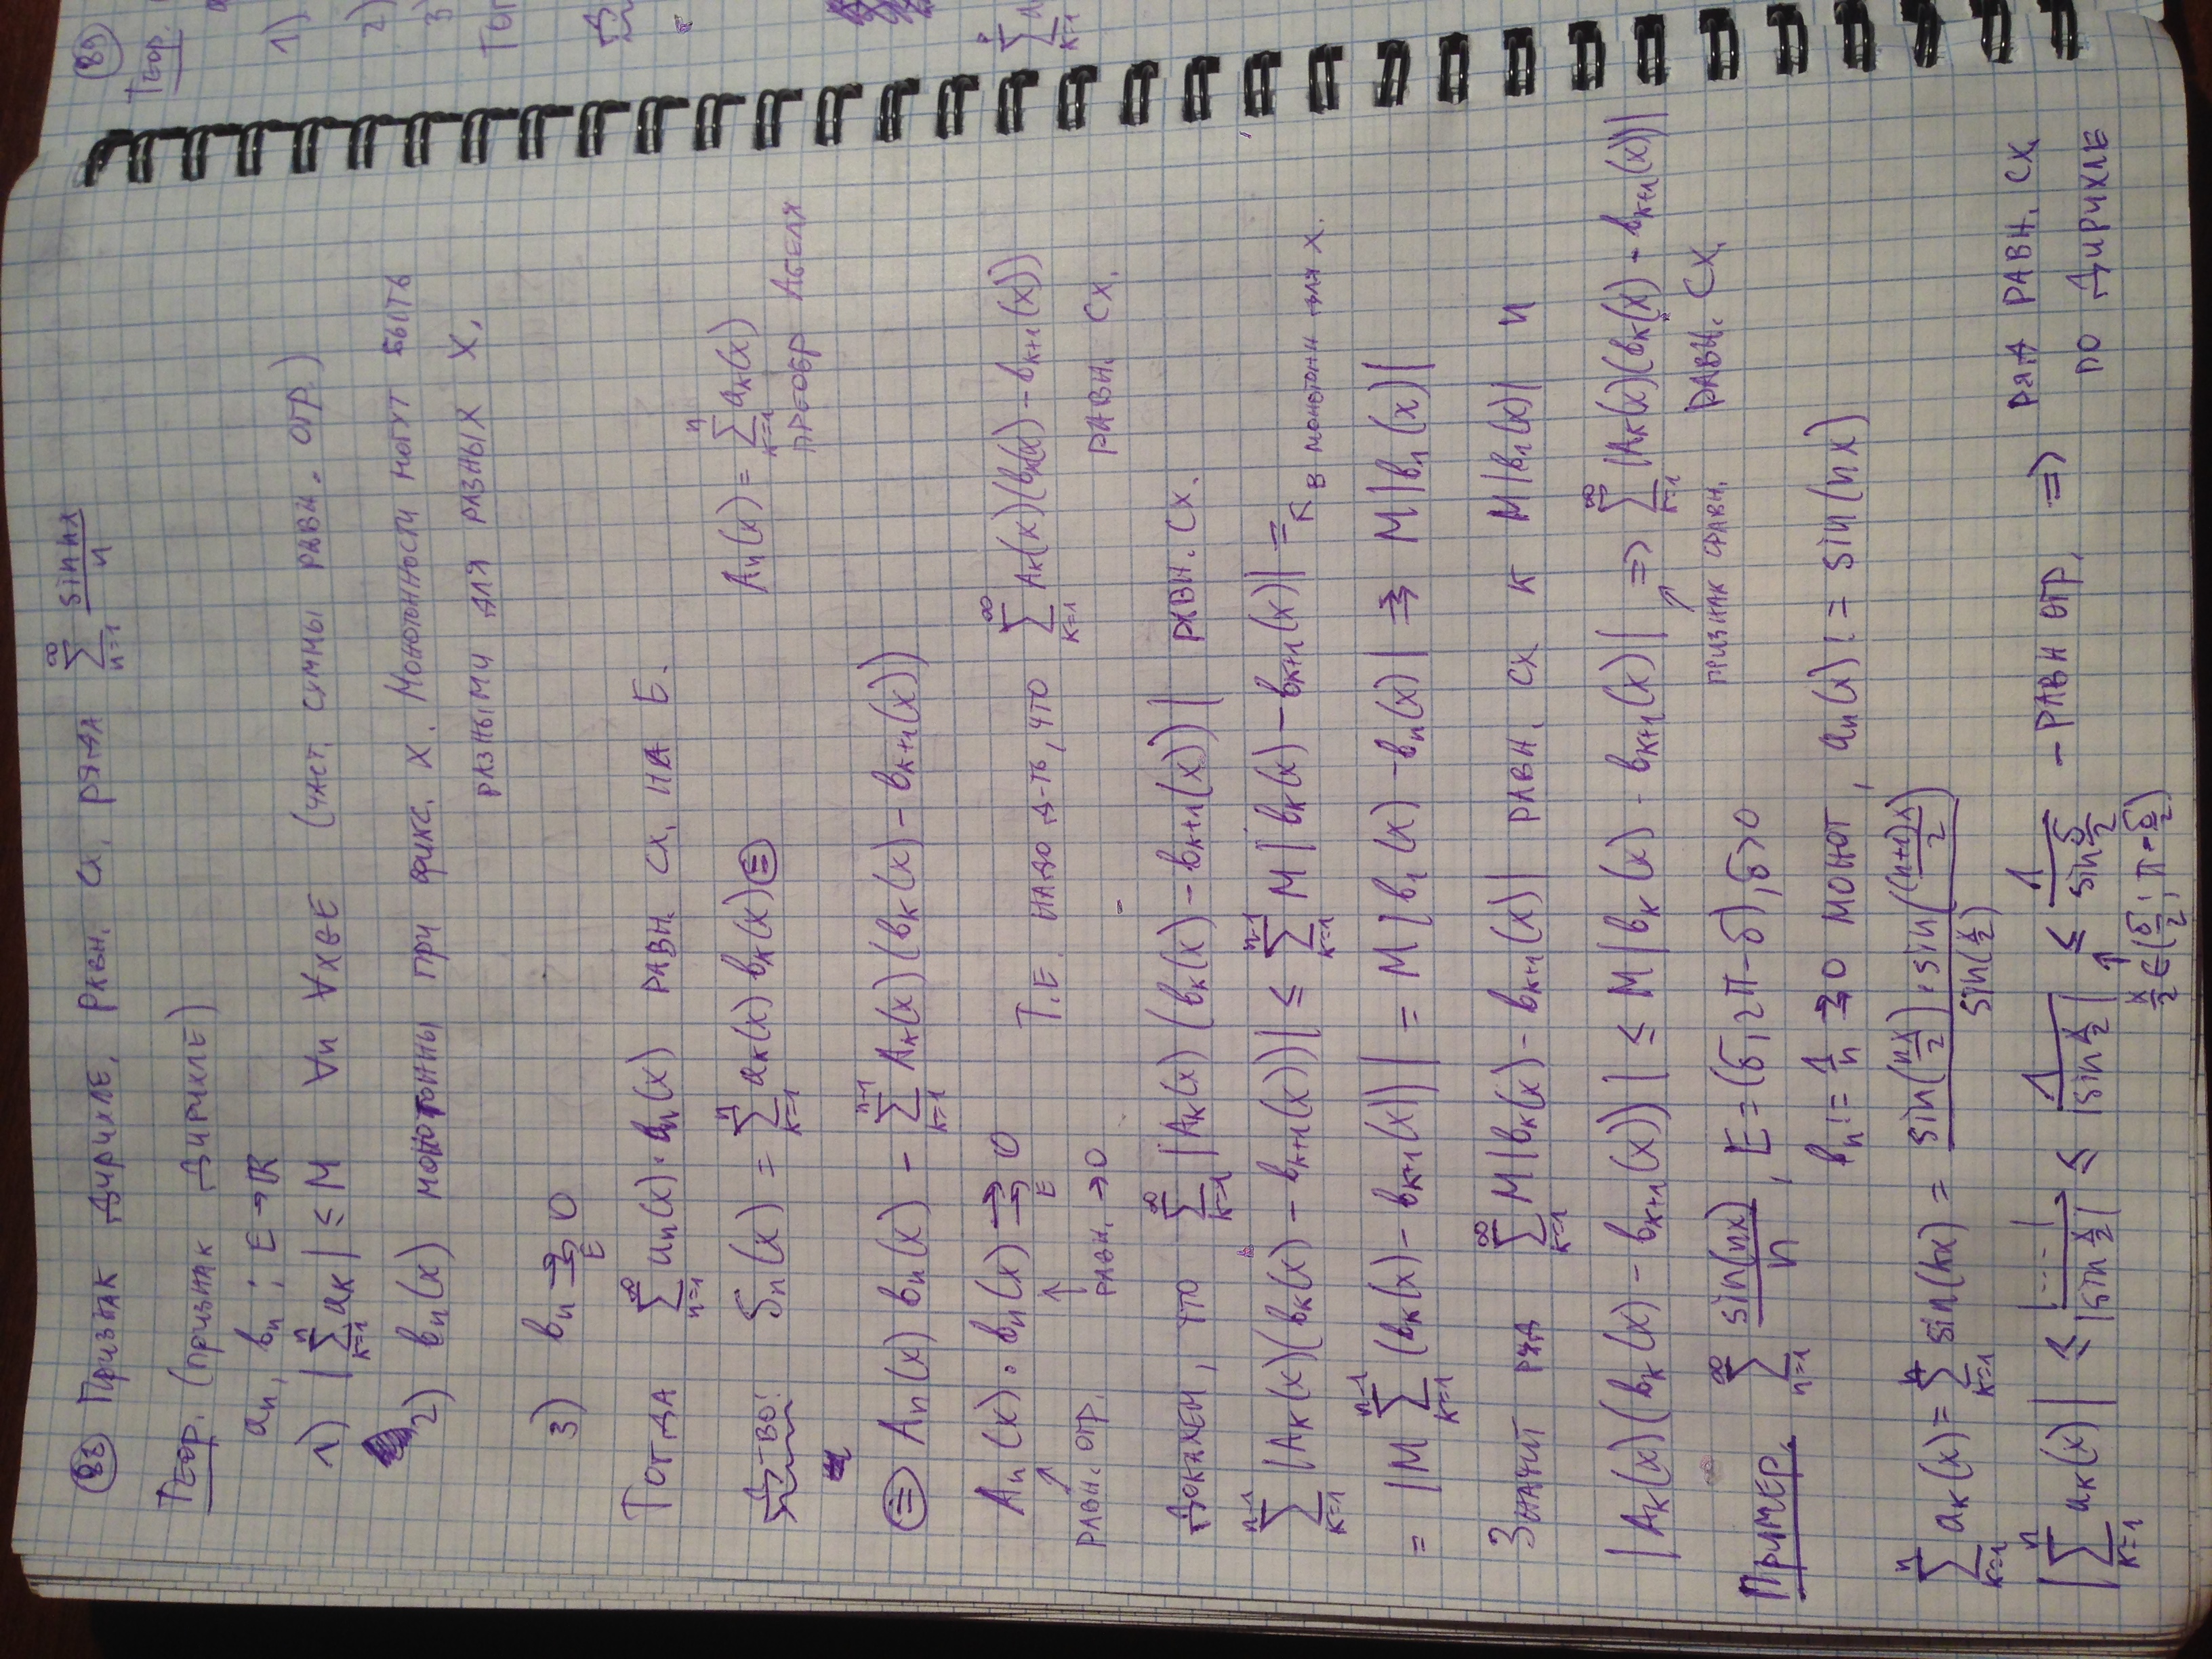 88 Признак Дирихле. Равн. сх. ряда ∑_{n=1}^{∞} sin nx / n
Теор. (признак Дирихле)
aₙ, bₙ : E → ℝ
1) |∑_{k=1}^{n} aₖ| ≤ M ∀n ∀x∈E (част. суммы равн. огр.)
2) bₙ(x) монотонны при фикс. x. Монотонности могут быть
разными для разных x.
3) bₙ ⇉_E 0
Тогда ∑_{n=1}^{∞} aₙ(x)·bₙ(x) равн. сх. на E.
Д-во: Sₙ(x) = ∑_{k=1}^{n} aₖ(x) bₖ(x) ⊜ Aₙ(x) = ∑_{k=1}^{n} aₖ(x)
преобр Абеля
⊜ Aₙ(x) bₙ(x) − ∑_{k=1}^{n-1} Aₖ(x)(bₖ(x) − bₖ₊₁(x))
Aₙ(x)·bₙ(x) ⇉_E 0 Т.е. надо д-ть, что ∑_{k=1}^{∞} Aₖ(x)(bₖ(x) − bₖ₊₁(x))
равн. огр. равн. → 0 равн. сх.
Докажем, что ∑_{k=1}^{∞} |Aₖ(x)(bₖ(x) − bₖ₊₁(x))| равн. сх.
∑_{k=1}^{n-1} |Aₖ(x)(bₖ(x) − bₖ₊₁(x))| ≤ ∑_{k=1}^{n-1} M|bₖ(x) − bₖ₊₁(x)| = ↖ в монотонн для x.
= |M ∑_{k=1}^{n-1} (bₖ(x) − bₖ₊₁(x))| = M|b₁(x) − bₙ(x)| ⇉ M|b₁(x)|
Значит ряд ∑_{k=1}^{∞} M|bₖ(x) − bₖ₊₁(x)| равн. сх к M|b₁(x)| и
|Aₖ(x)(bₖ(x) − bₖ₊₁(x))| ≤ M|bₖ(x) − bₖ₊₁(x)| ⇒ ∑_{k=1}^{∞} |Aₖ(x)(bₖ(x) − bₖ₊₁(x))|
признак сравн. равн. сх.
Пример. ∑_{n=1}^{∞} sin(nx)/n, E = (δ, 2π−δ), δ>0
bₙ := 1/n ⇉ 0 монот, aₙ(x) := sin(nx)
∑_{k=1}^{n} aₖ(x) = ∑_{k=1}^{n} sin(kx) = sin(nx/2)·sin((n+1)x/2) / sin(x/2)
|∑_{k=1}^{n} aₖ(x)| ≤ |...| / |sin x/2| ≤ 1 / |sin x/2| ≤ 1 / sin δ/2 − равн огр. ⇒ ряд равн. сх.
по Дирихле
x/2 ∈ (δ/2; π − δ/2)
89
Теор.
1)
2)
3)